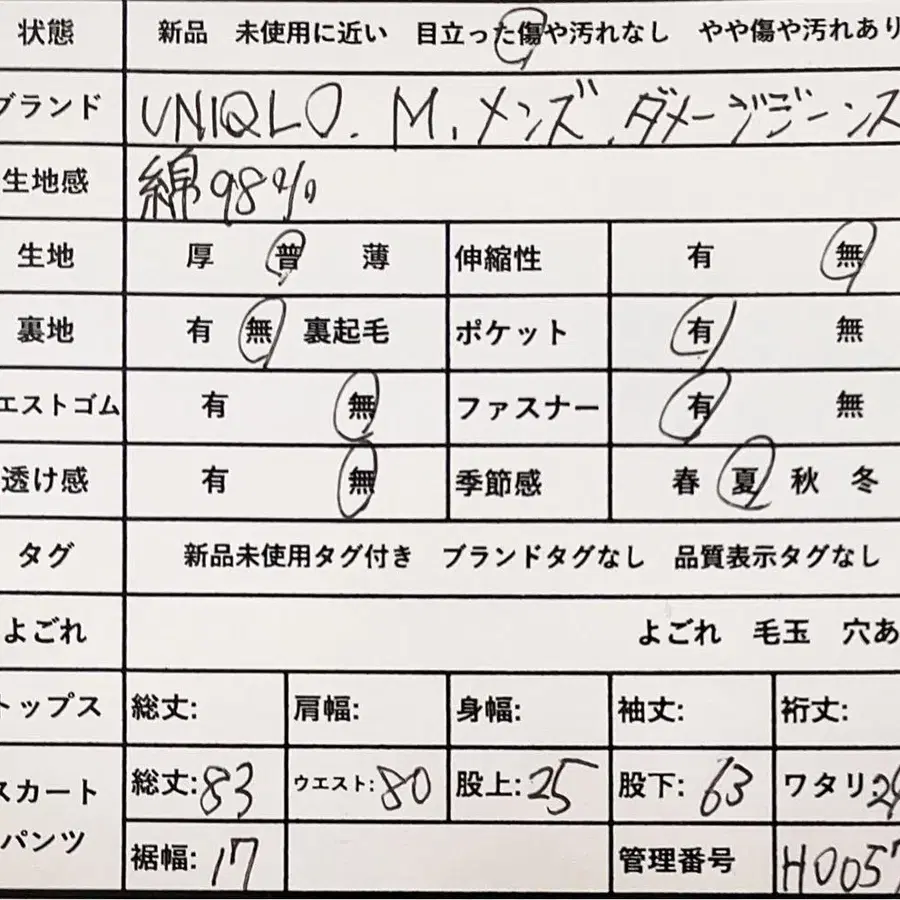 状態 新品 未使用に近い 目立った傷や汚れなし やや傷や汚れあり
ブランド UNIQLO. M. メンズ. ダメージジーンス
生地感 綿98%
生地 厚 普 薄 伸縮性 有 無
裏地 有 無 裏起毛 ポケット 有 無
エストゴム 有 無 ファスナー 有 無
透け感 有 無 季節感 春 夏 秋 冬
タグ 新品未使用タグ付き ブランドタグなし 品質表示タグなし
よごれ よごれ 毛玉 穴あ
トップス 総丈: 肩幅: 身幅: 袖丈: 裄丈:
スカート パンツ 総丈:83 ウエスト:80 股上:25 股下:63 ワタリ
裾幅:17 管理番号 H0057